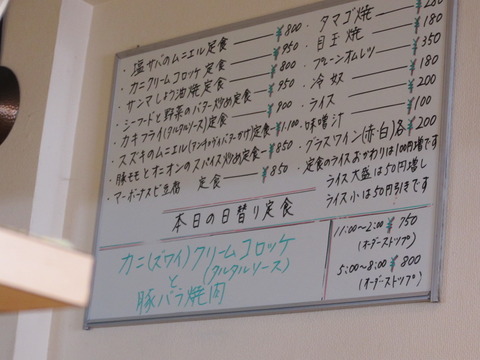 ・塩サバのムニエル定食 ¥800
・カニクリームコロッケ定食 ¥950
・サンマしょう油焼定食 ¥800
・シーフードと野菜のバター炒め定食 ¥950
・カキフライ(タルタルソース)定食 ¥900
・スズキのムニエル(アンチョヴィバターかけ)定食 ¥1,100
・豚モモとオニオンのスパイス炒め定食 ¥850
・マーボーナスピ豆腐 定食 ¥850
・タマゴ焼 280
・目玉焼 ¥180
・プレーンオムレツ ¥350
・冷奴 ¥180
・ライス ¥200
・味噌汁 ¥100
・グラスワイン(赤・白)各 ¥200
定食のライスおかわりは100円増です
ライス大盛は50円増し
ライス小は50円引きです
本日の日替り定食
カニ(ズワイ)クリームコロッケ
(タルタルソース)
と
豚バラ焼肉
11:00〜2:00 ¥750
(オーダーストップ)
5:00〜8:00 ¥800
(オーダーストップ)